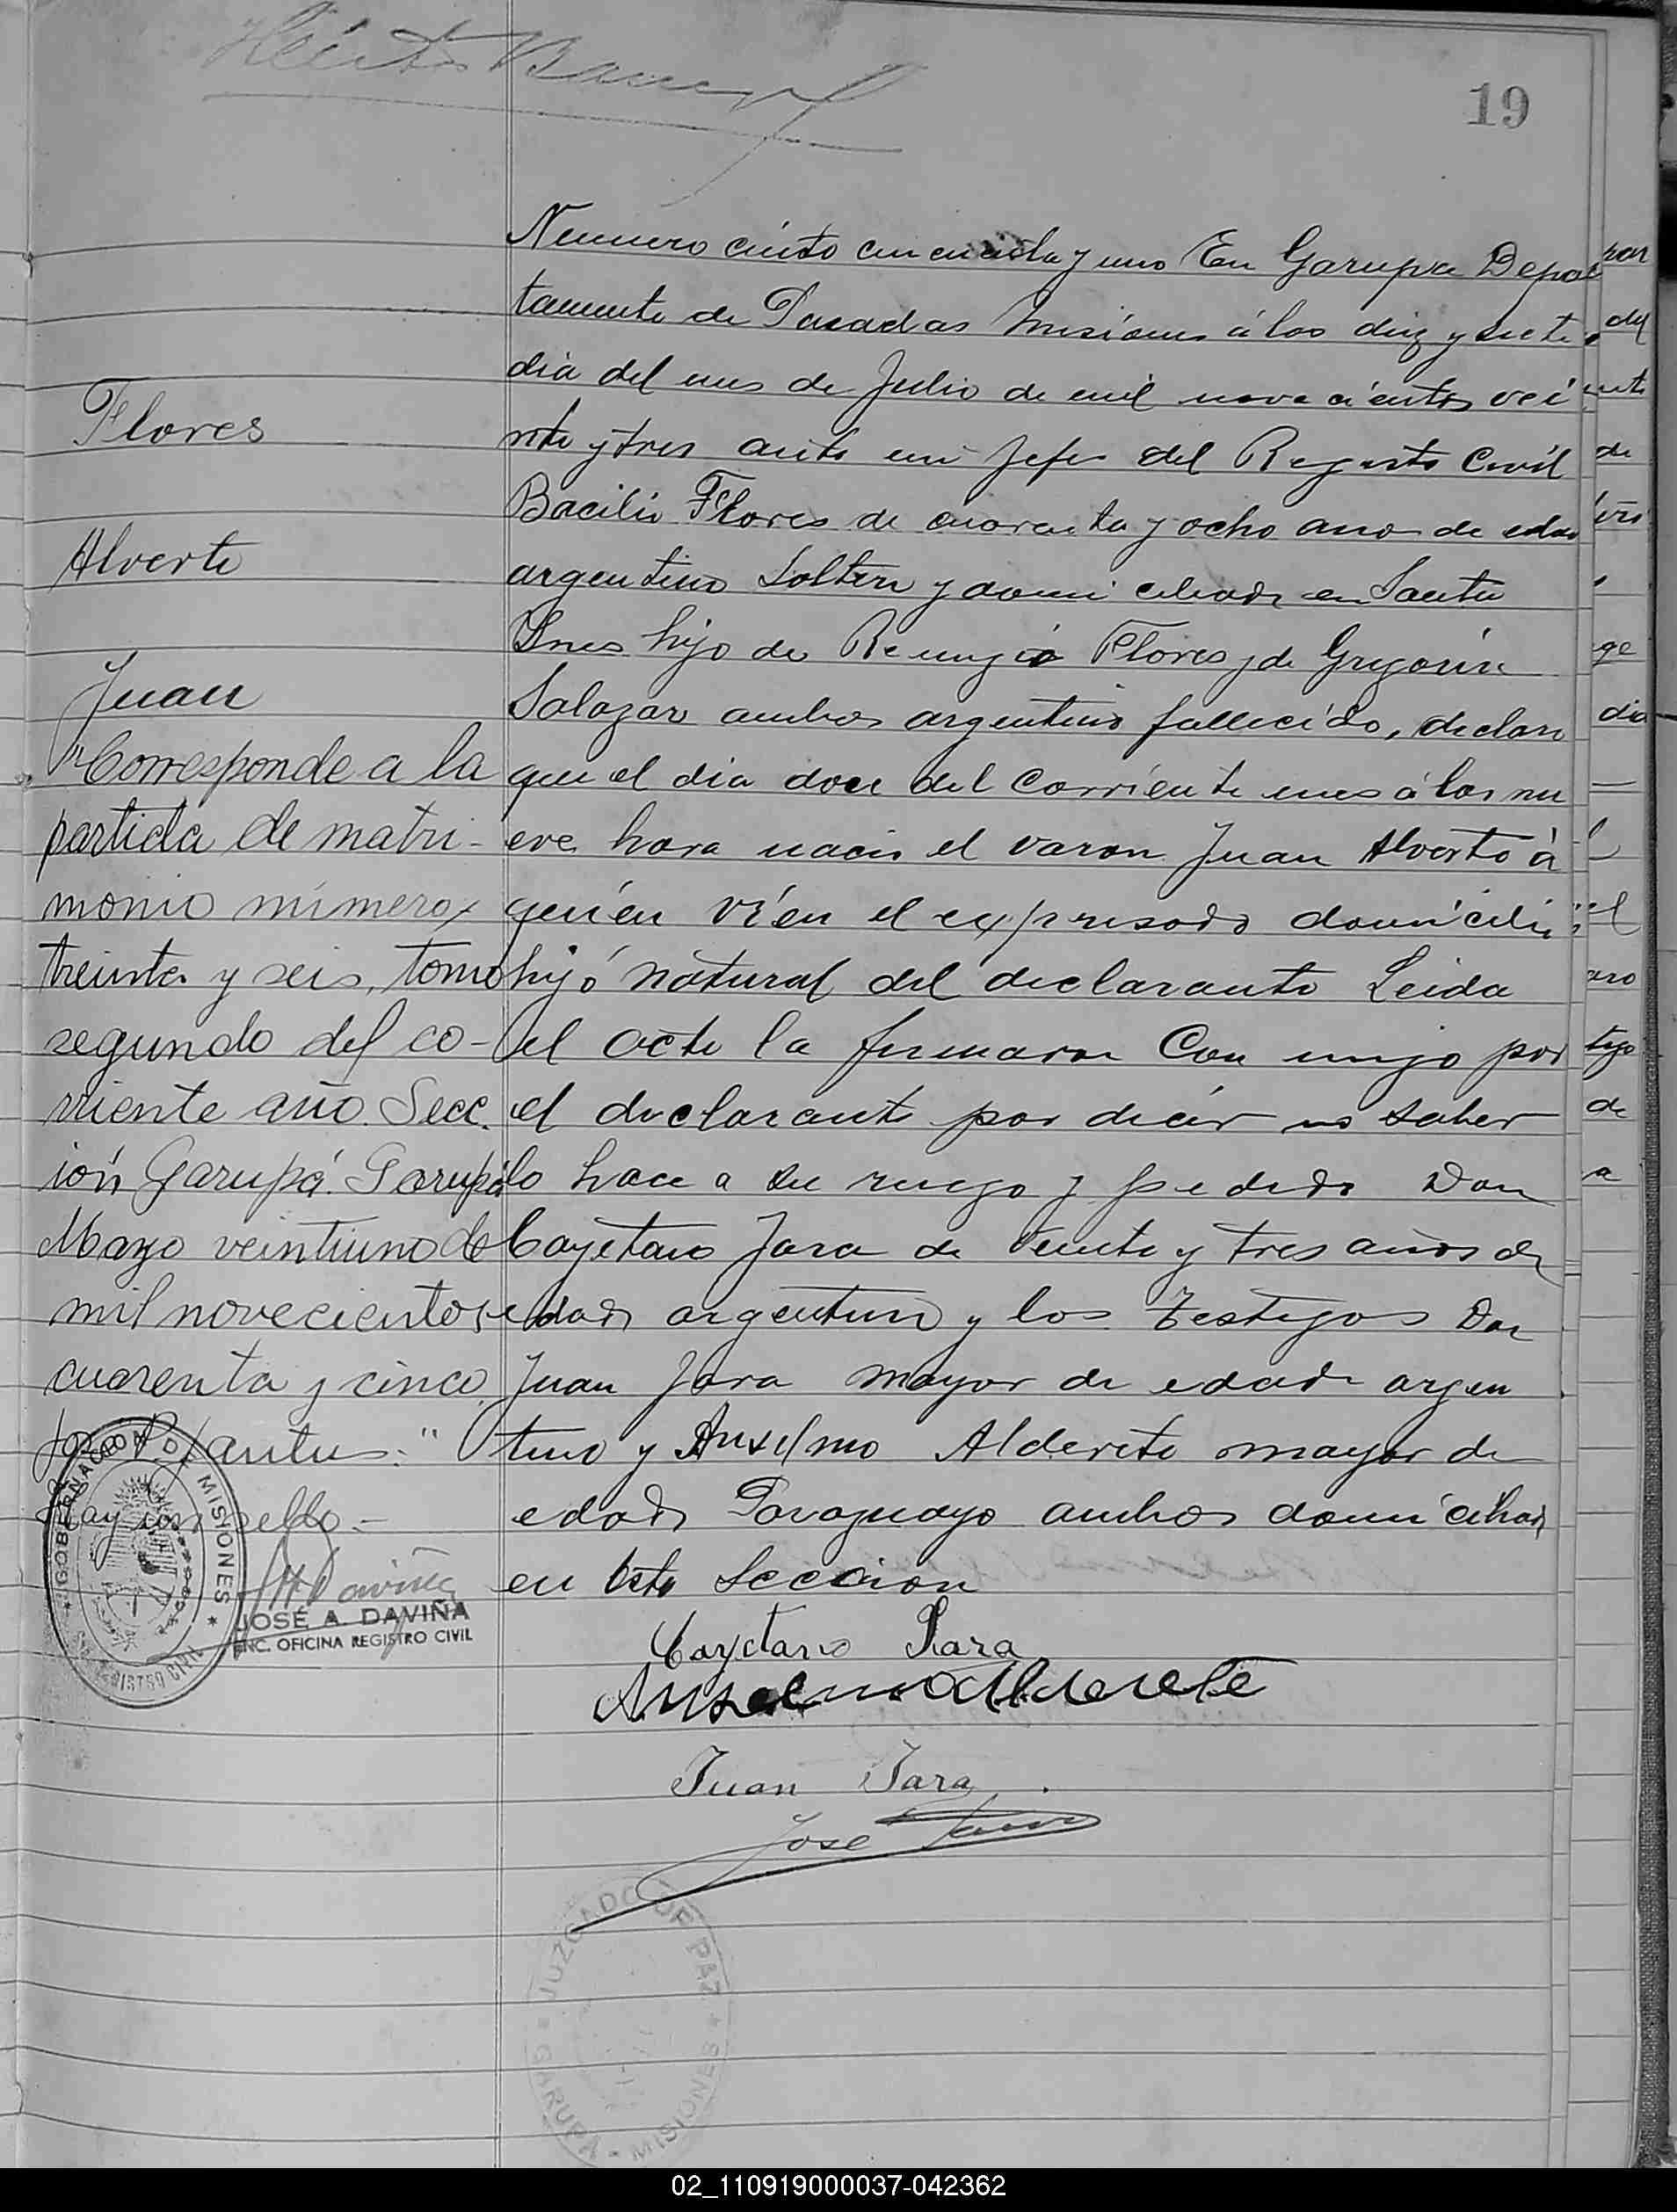 19
Numero ciento cincuenta y uno En Garupa Depar
tamento de Posadas Misiones á los diez y siete
dia del mes de Julio de mil novecientos vei
nte y tres ante mi Jefe del Registo Civil
Bacilio Flores de cuarenta y ocho anos de edad
argentino Soltero y domiciliado en Santa
Ines hijo de Remigio Flores y de Gregoria
Salazar ambos argentino fallecido, declara
que el dia doce del Corriente mes á las nu
eve hora nacio el varon Juan Alverto á
quién vi en el expresado domicilio
hijó natural del declarante Leida
el acta la firmaron Con migo por
el declarante por decir no saber
lo hace a su ruego y pedido Don
Cayetano Jara de veinte y tres años de
edad argentino y los testigos Don
Juan Jara mayor de edad argen
tino y Anselmo Alderete mayor de
edad Paraguayo ambos domiciliad
en esta Seccion
Cayetano Jara
Anselmo Alderete
Juan Jara
José
Flores
Alverto
Juan
"Corresponde a la
partida de matri-
monio número
treinta y seis, tomo
segundo del co-
rriente año. Secc.
ión Garupá. Garupá
Mayo veintiuno de
mil novecientos
cuarenta y cinco
Hay un sello.-
GOBERNACION DE MISIONES
REGISTRO CIVIL
JOSÉ A. DAVIÑA
ENC. OFICINA REGISTRO CIVIL
JUZGADO DE PAZ
GARUPA - MISIONES
02_110919000037-042362